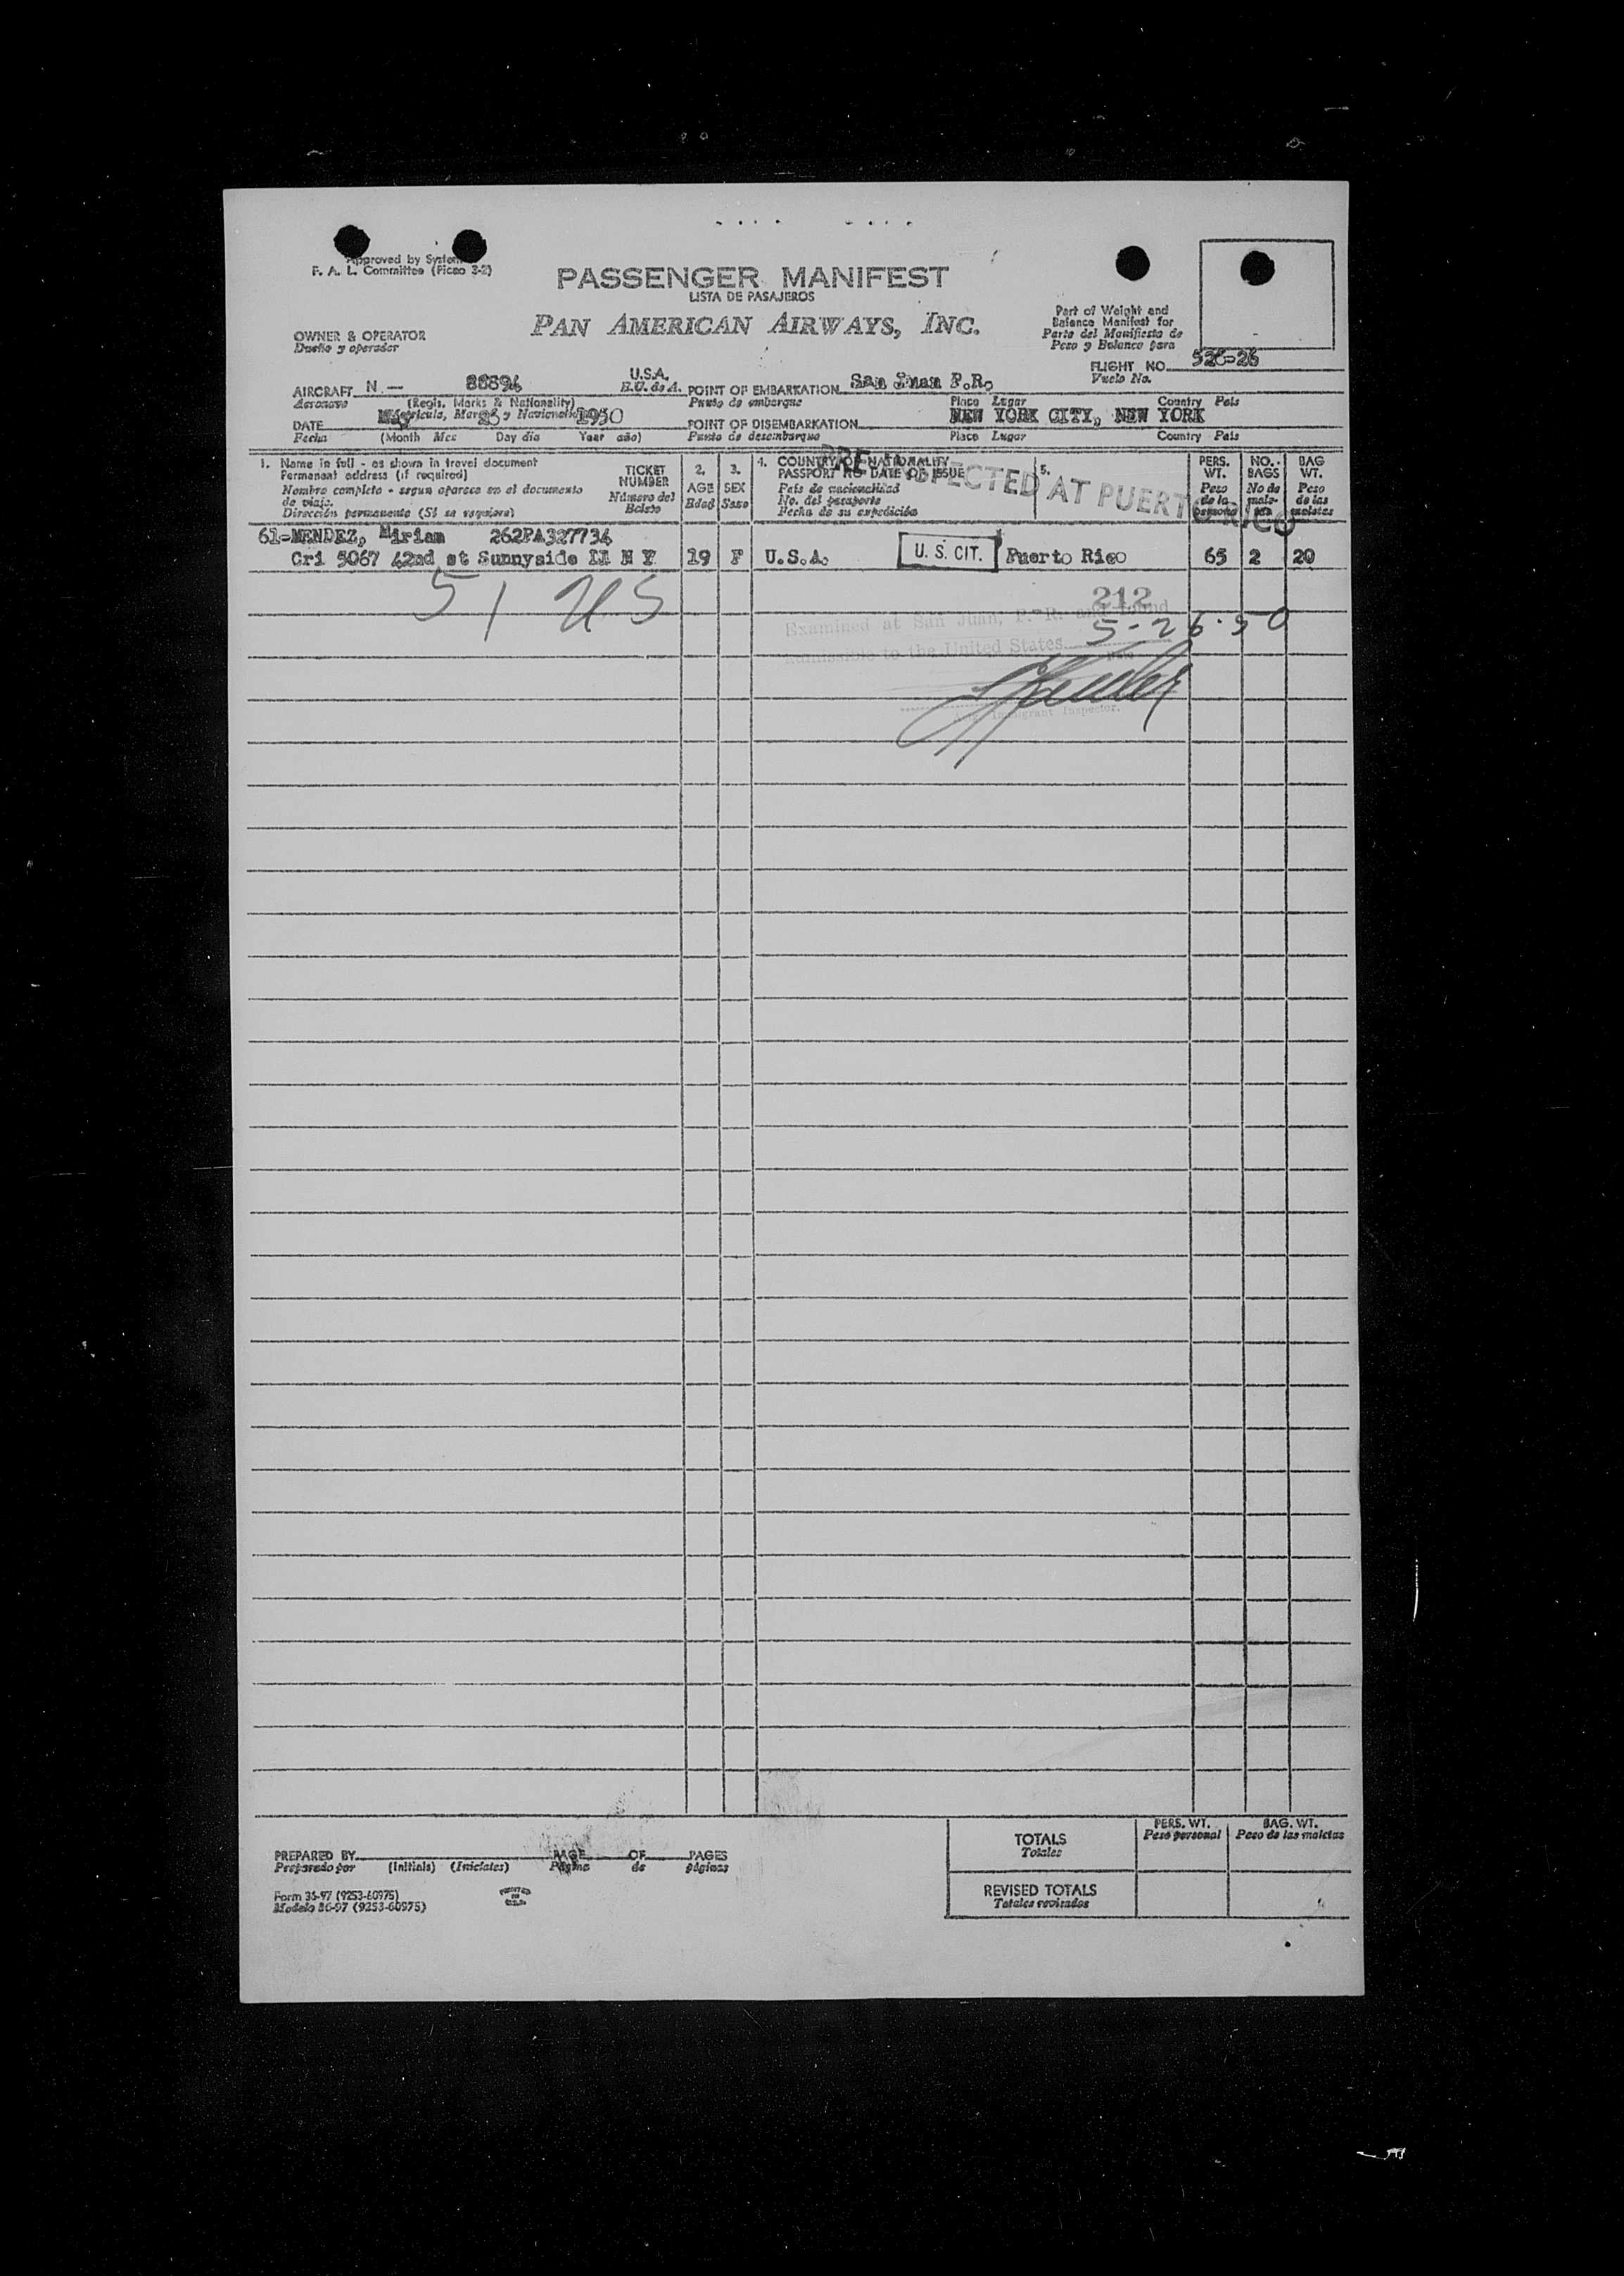 Approved by System
F. A. L. Committee (Picao 3-2)
PASSENGER MANIFEST
LISTA DE PASAJEROS
PAN AMERICAN AIRWAYS, INC.
OWNER & OPERATOR
Dueño y operador
Part of Weight and
Balance Manifest for
Parte del Manifiesto de
Peso y Balance para
FLIGHT NO. 526-26
Vuelo No.
AIRCRAFT N.— 88894 U.S.A.
Aeronave (Regis. Marks & Nationality) E.U. de A.
POINT OF EMBARKATION San Juan P.R.
Punto de embarque Place Lugar Country País
DATE May 1950
Fecha (Month Mes Day día Year año)
POINT OF DISEMBARKATION NEW YORK CITY, NEW YORK
Punto de desembarque Place Lugar Country País
1. Name in full - as shown in travel document
Permanent address (if required)
Nombre completo - segun aparece en el documento
de viaje.
Dirección permanente (Si se requiera)
TICKET
NUMBER
Número del
Boleto
2.
AGE
Edad
3.
SEX
Sexo
4. COUNTRY OF NATIONALITY
PASSPORT NO. DATE OF ISSUE
País de nacionalidad
No. del pasaporte
Fecha de su expedición
5.
PERS.
WT.
Peso
de la
persona
NO.
BAGS
No de
male-
tas
BAG
WT.
Peso
de las
maletas
PRE INSPECTED AT PUERTO RICO
61-MENDEZ, Miriam 262PA327734
Cri 5067 42nd st Sunnyside LI N Y 19 F U.S.A. U. S. CIT. Puerto Rico 65 2 20
51 US
212
Examined at San Juan, P. R. and found
5-26-50
admissible to the United States
Immigrant Inspector.
TOTALS
Totales
PERS. WT.
Peso personal
BAG. WT.
Peso de las maletas
REVISED TOTALS
Totales revisados
PREPARED BY PAGE OF PAGES
Preparado por (Initials) (Iniciales) Página de páginas
Form 36-97 (9253-60975)
Modelo 36-97 (9253-60975)
PRINTED
IN
U.S.A.